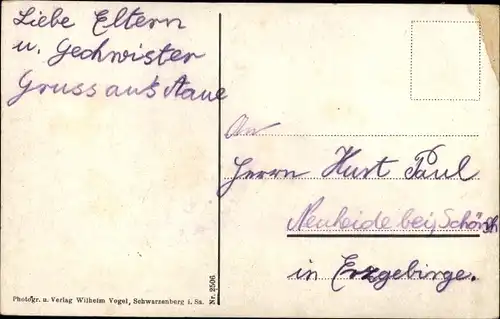 Liebe Eltern
u. Gechwister
Gruss aus Aaue
An
Herrn Kurt Paul
Neuheide bei Schönh
in Erzgebirge.
Photogr. u. Verlag Wilhelm Vogel, Schwarzenberg i. Sa.
Nr. 2506